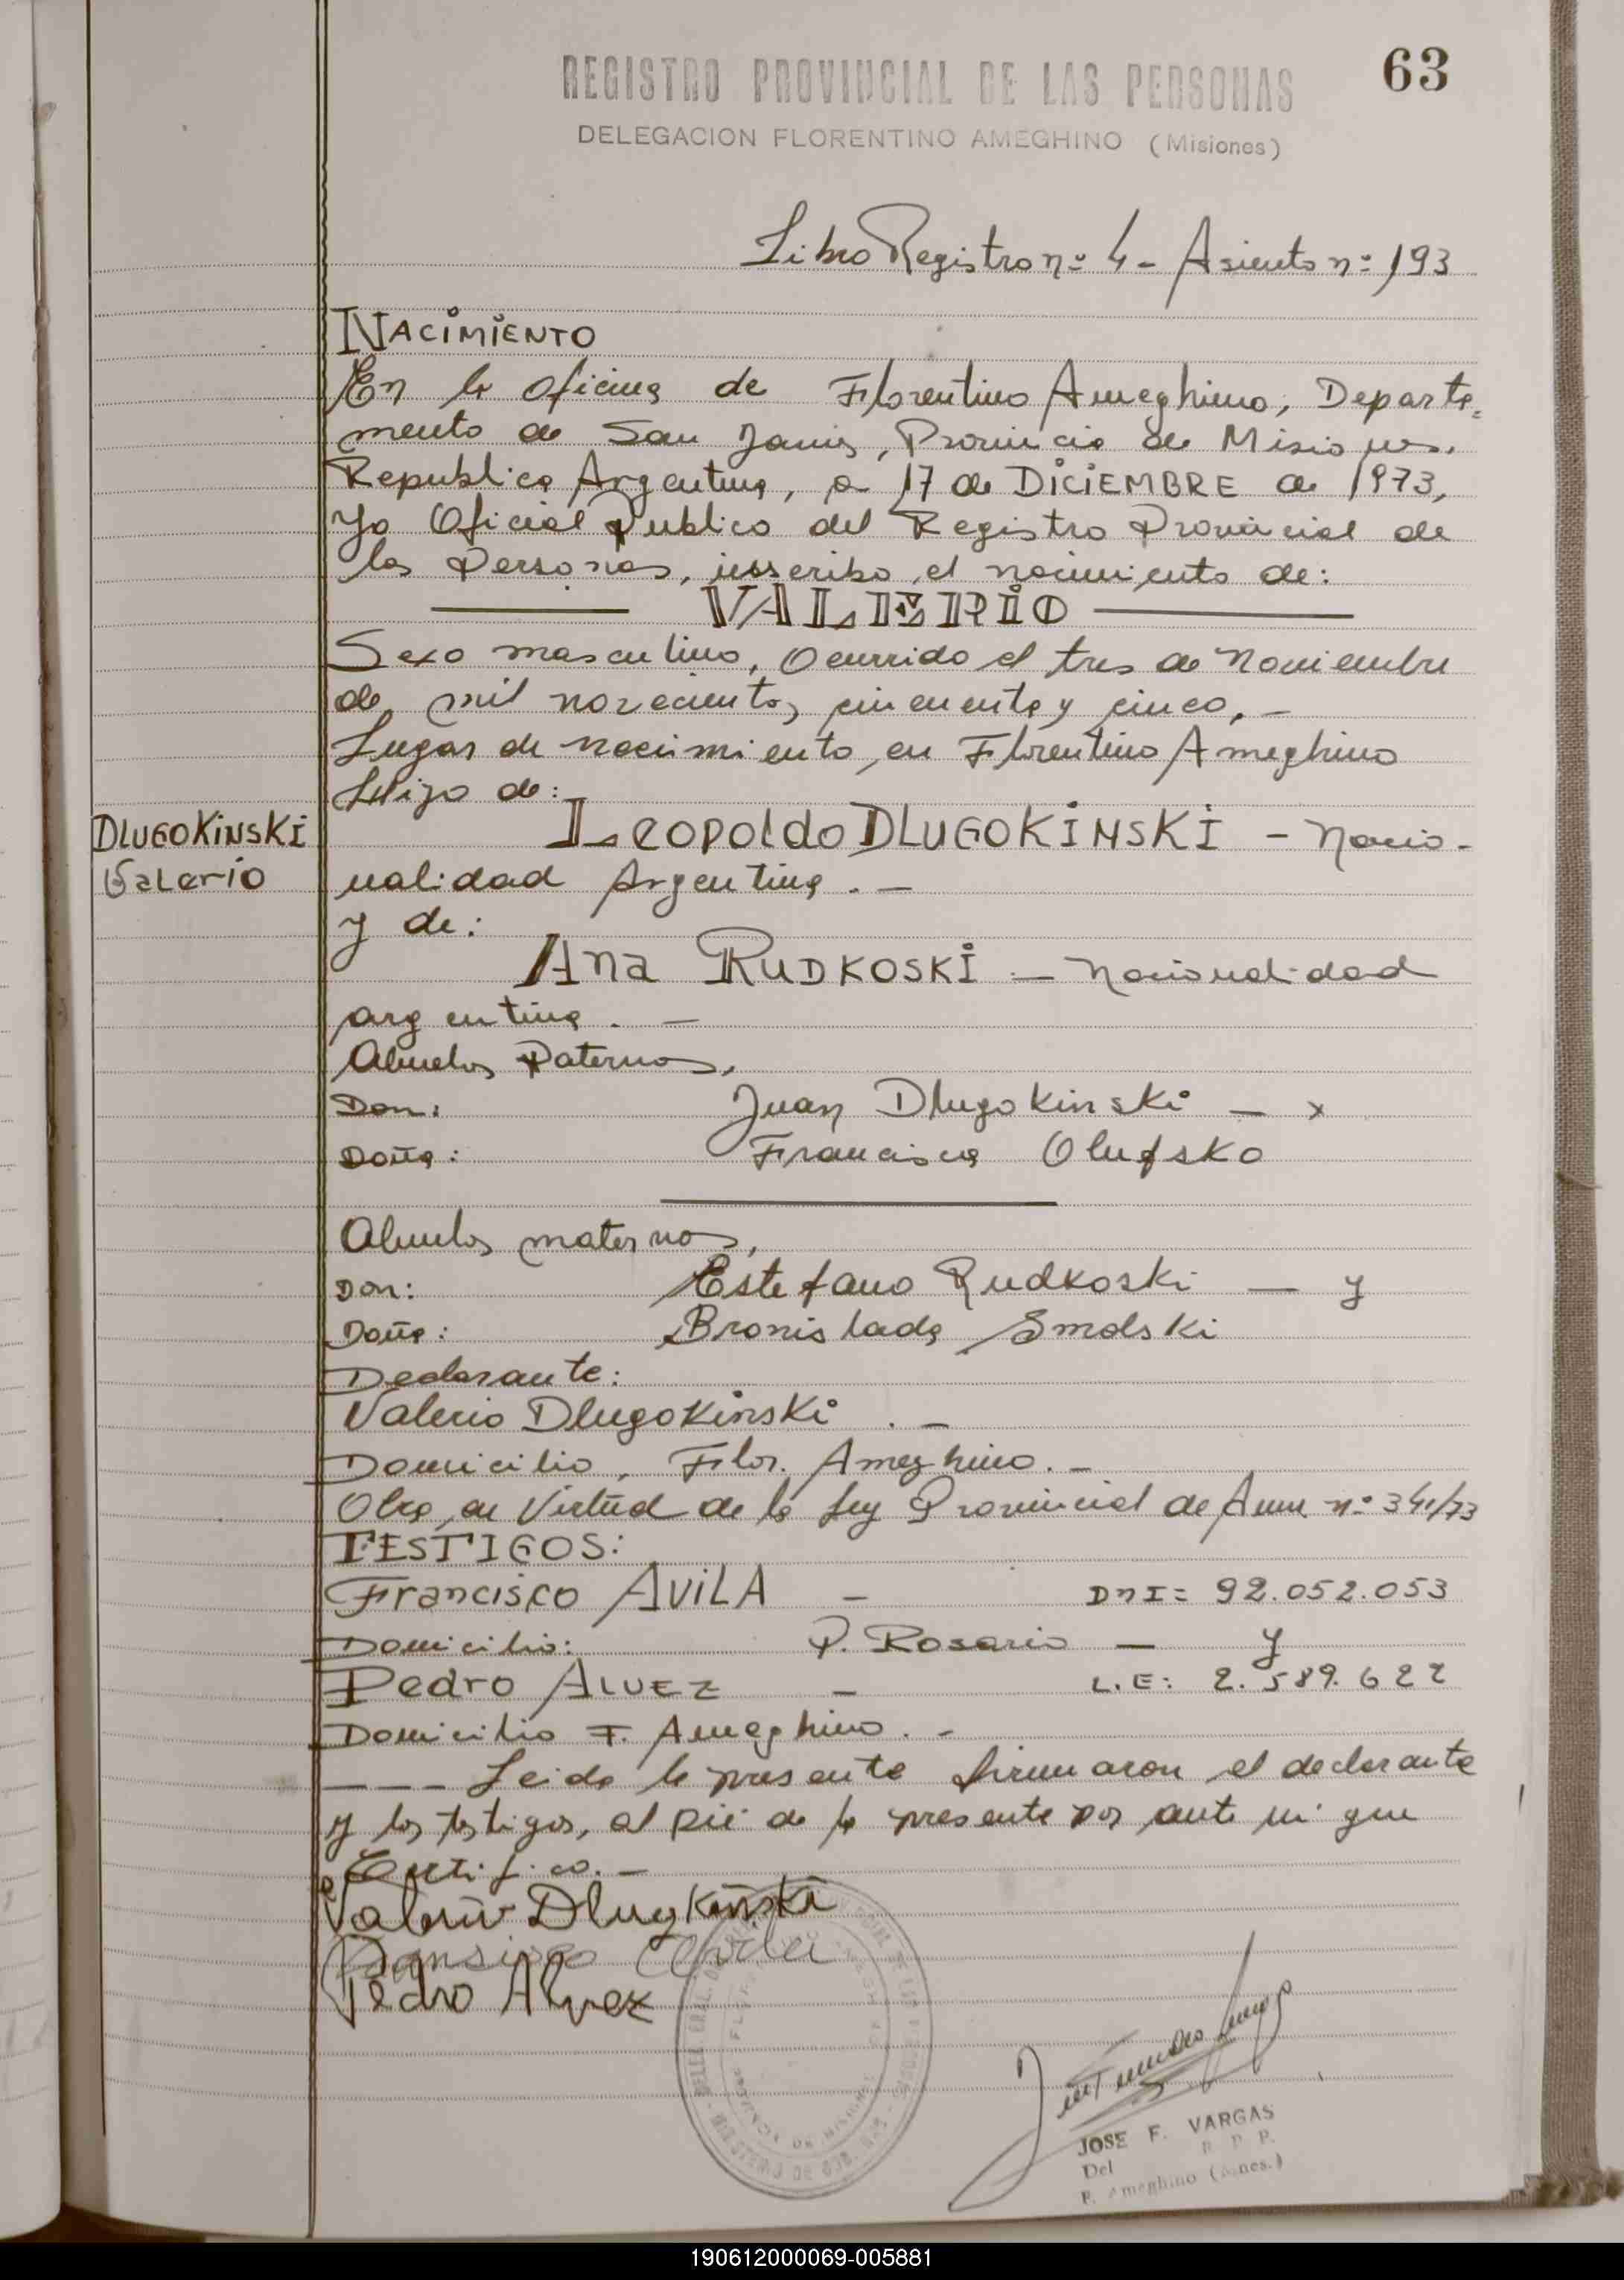 63
REGISTRO PROVINCIAL DE LAS PERSONAS
DELEGACION FLORENTINO AMEGHINO (Misiones)
Libro Registro nº 4 - Asiento nº 193
NACIMIENTO
En la Oficina de Florentino Ameghino, Departa=
mento de San Javier, Provincia de Misiones.
Republica Argentina, a 17 de DICIEMBRE de 1973,
Yo Oficial Publico del Registro Provincial de
las Personas, inscribo el nacimiento de:
VALERIO
Sexo masculino, Ocurrido el tres de Noviembre
de mil novecientos cincuenta y cinco. -
Lugar de nacimiento, en Florentino Ameghino
Hijo de:
DLUGOKINSKI
Valerio
Leopoldo DLUGOKINSKI - Nacio-
nalidad Argentina. -
y de:
Ana RUDKOSKI - Nacionalidad
argentina. -
Abuelos Paternos,
Don: Juan Dlugokinski - x
Doña: Francisca
Abuelos maternos,
Don: Estefano Rudkoski - y
Doña: Bronislada Smolski
Declarante:
Valerio Dlugokinski. -
Domicilio, Flor. Ameghino. -
Obra en Virtud de la Ley Provincial de Amn nº 341/73
TESTIGOS:
Francisco AVILA - DNI= 92.052.053
Domicilio: P. Rosario - y
Pedro ALVEZ - L.E: 2.589.622
Domicilio F. Ameghino. -
--- Leida la presente firmaron el declarante
y los testigos, al pie de la presente por ante mi que
Certifico. -
Valerio Dlugokinski
Fransisco Avila
Pedro Alvez
JOSE F. VARGAS
Del R. P. P.
F. Ameghino (Mnes.)
190612000069-005881